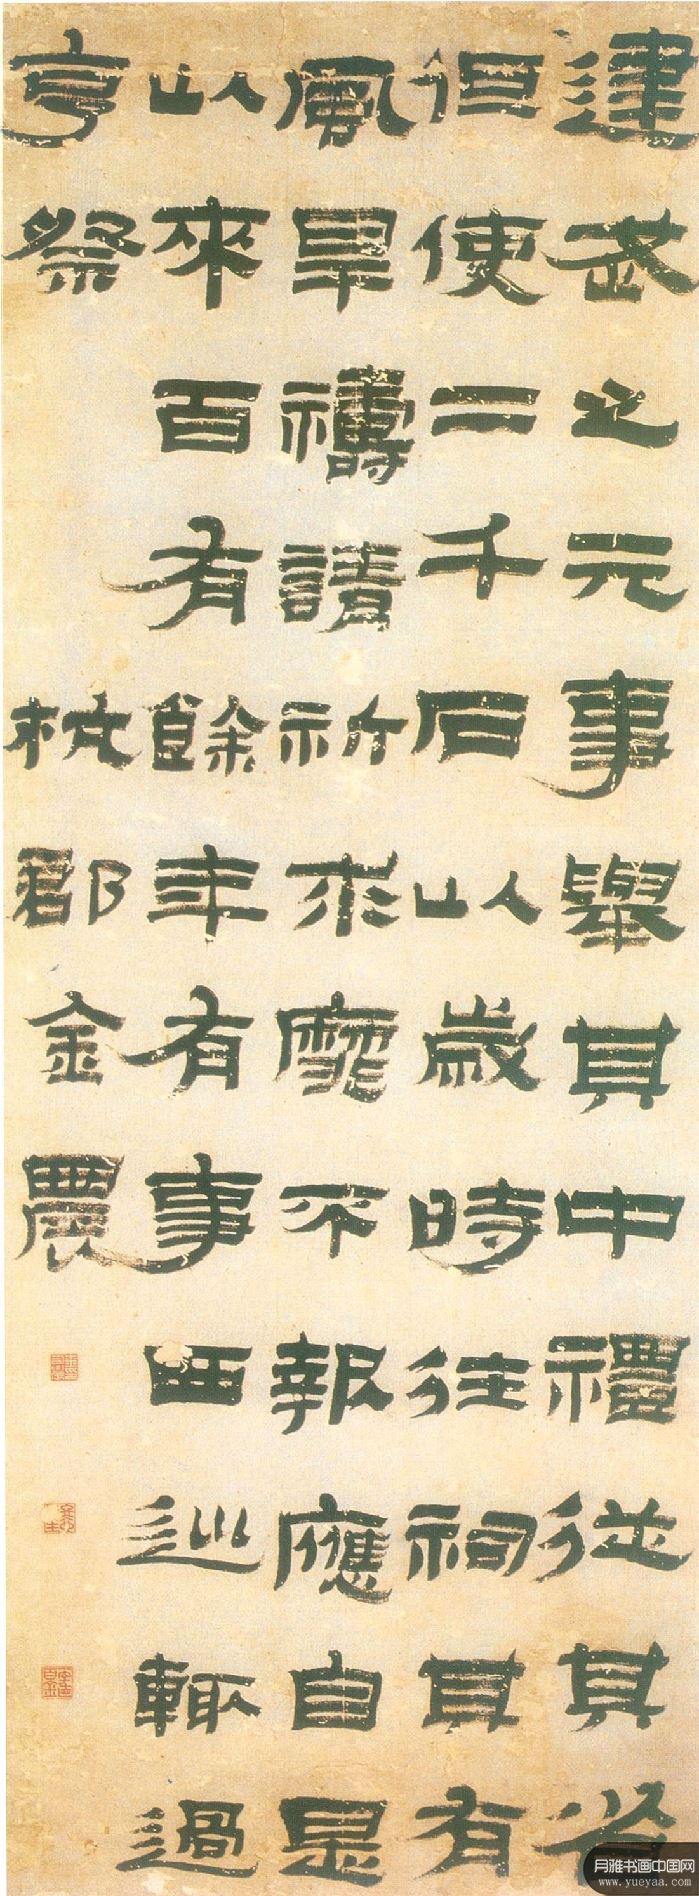 建武之元事舉其中禮從其省
但使二千石以歲時往祠其有
風旱禱請祈求靡不報應自是
以來百有餘年有事西巡輒過
亨祭
杭郡金農
月雅书画中国网
www.yueyaa.com